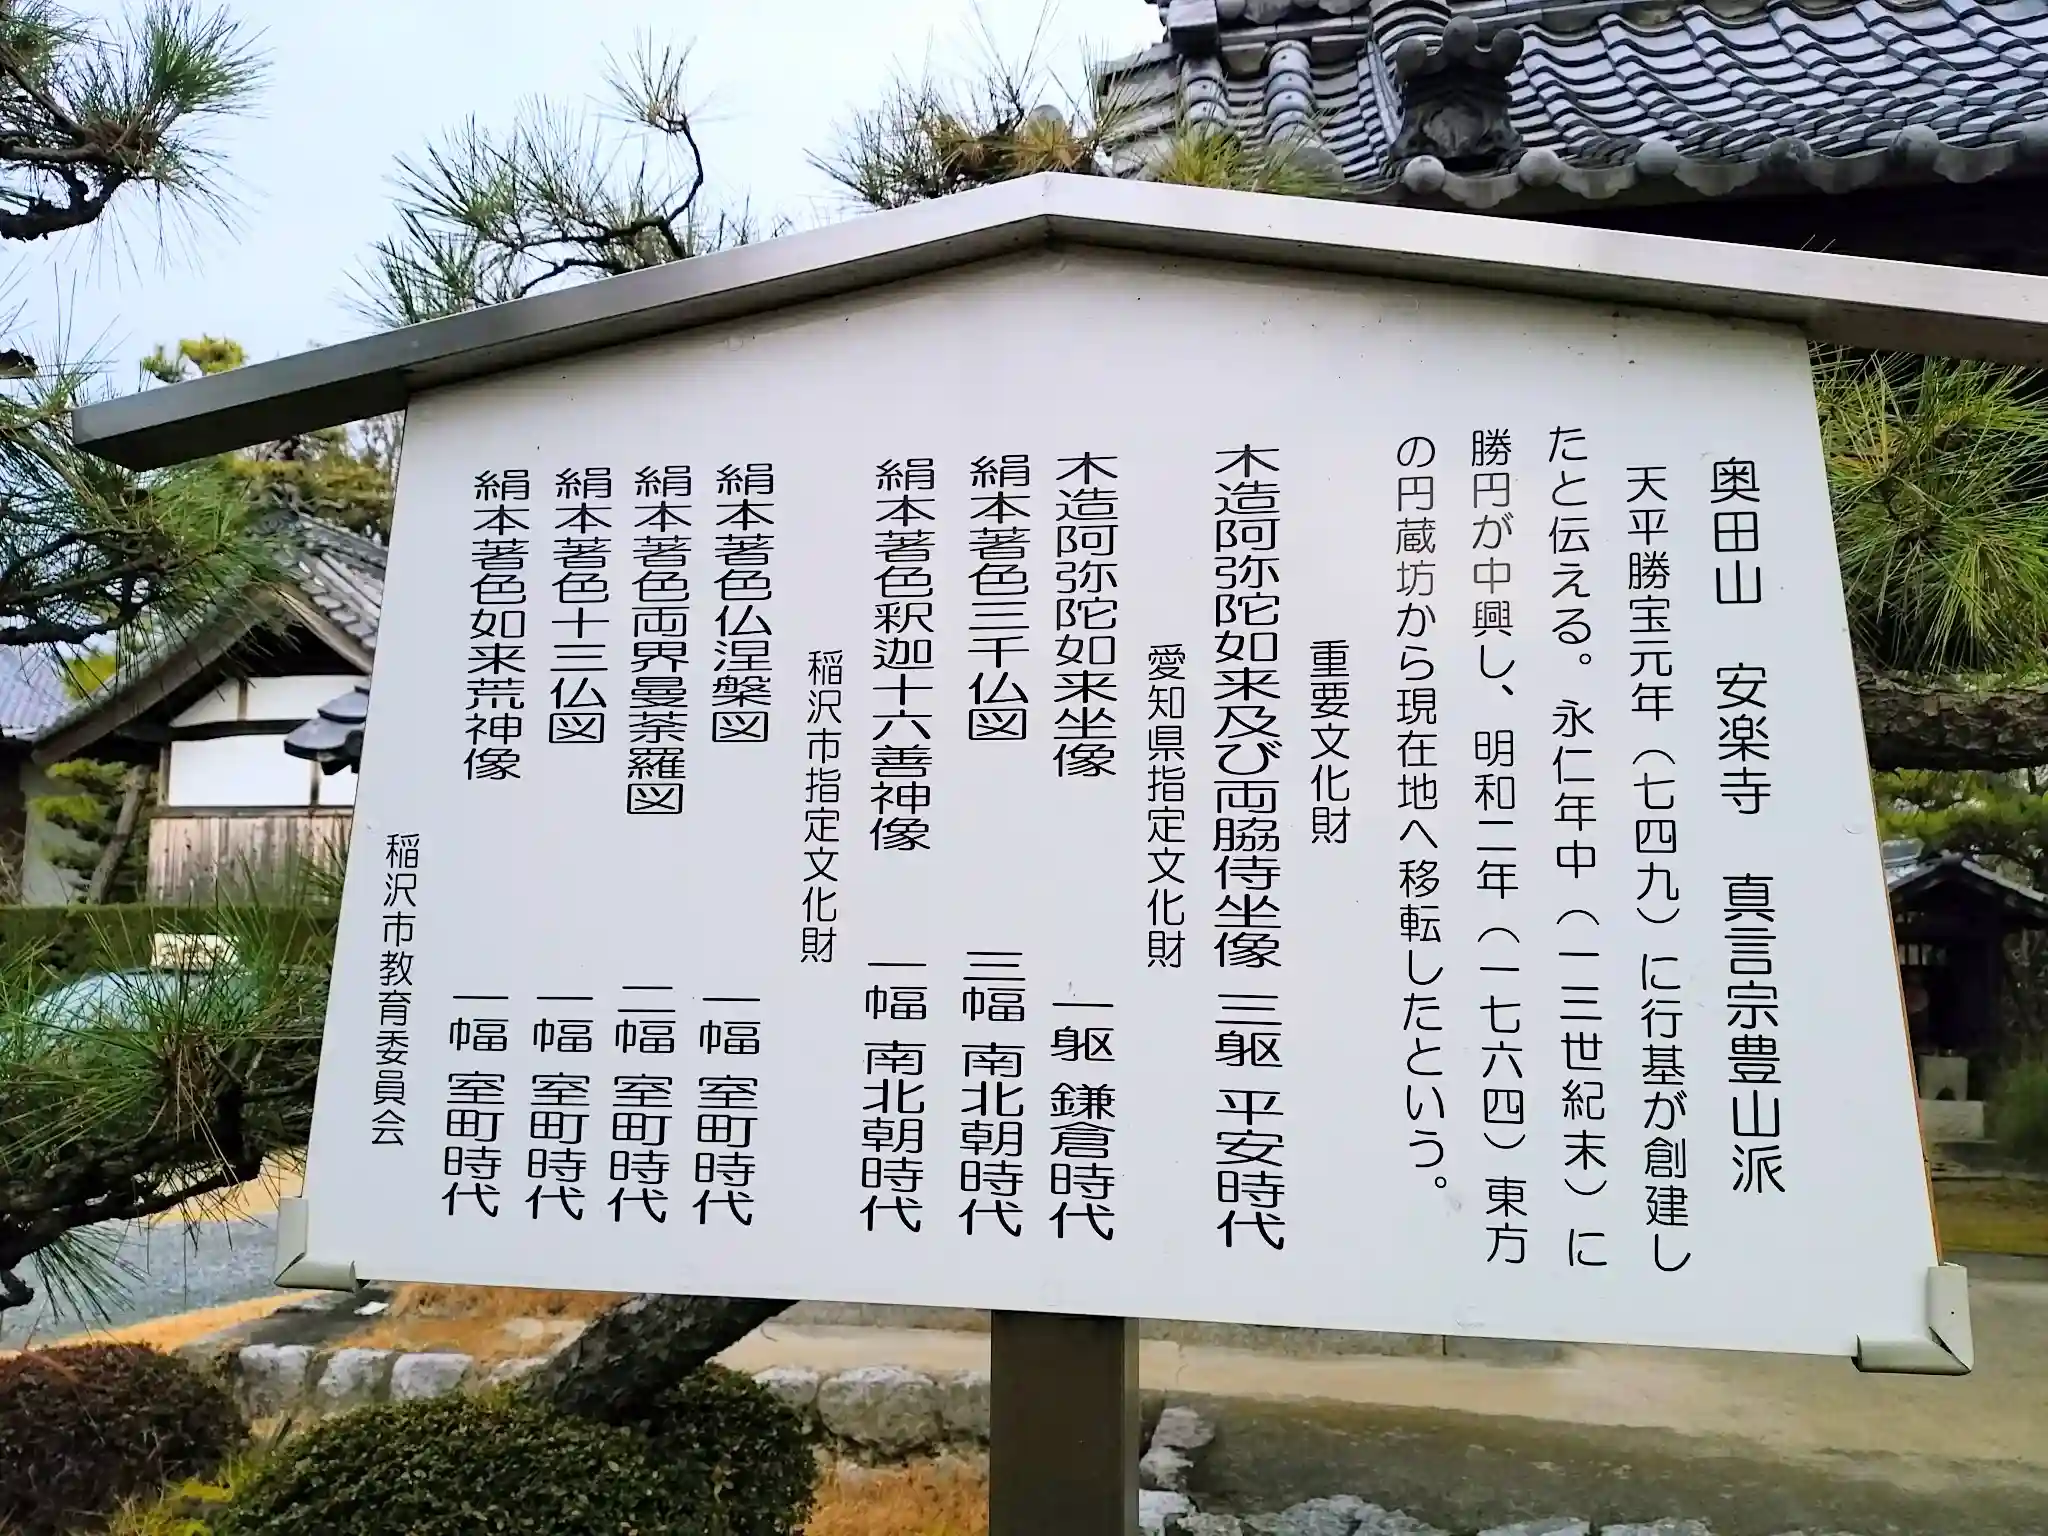 奥田山　安楽寺　真言宗豊山派
天平勝宝元年（七四九）に行基が創建し
たと伝える。永仁年中（一三世紀末）に
勝円が中興し、明和二年（一七六四）東方
の円蔵坊から現在地へ移転したという。
重要文化財
木造阿弥陀如来及び両脇侍坐像　三躯　平安時代
愛知県指定文化財
木造阿弥陀如来坐像　一躯　鎌倉時代
絹本著色三千仏図　三幅　南北朝時代
絹本著色釈迦十六善神像　一幅　南北朝時代
稲沢市指定文化財
絹本著色仏涅槃図　一幅　室町時代
絹本著色両界曼荼羅図　二幅　室町時代
絹本著色十三仏図　一幅　室町時代
絹本著色如来荒神像　一幅　室町時代
稲沢市教育委員会